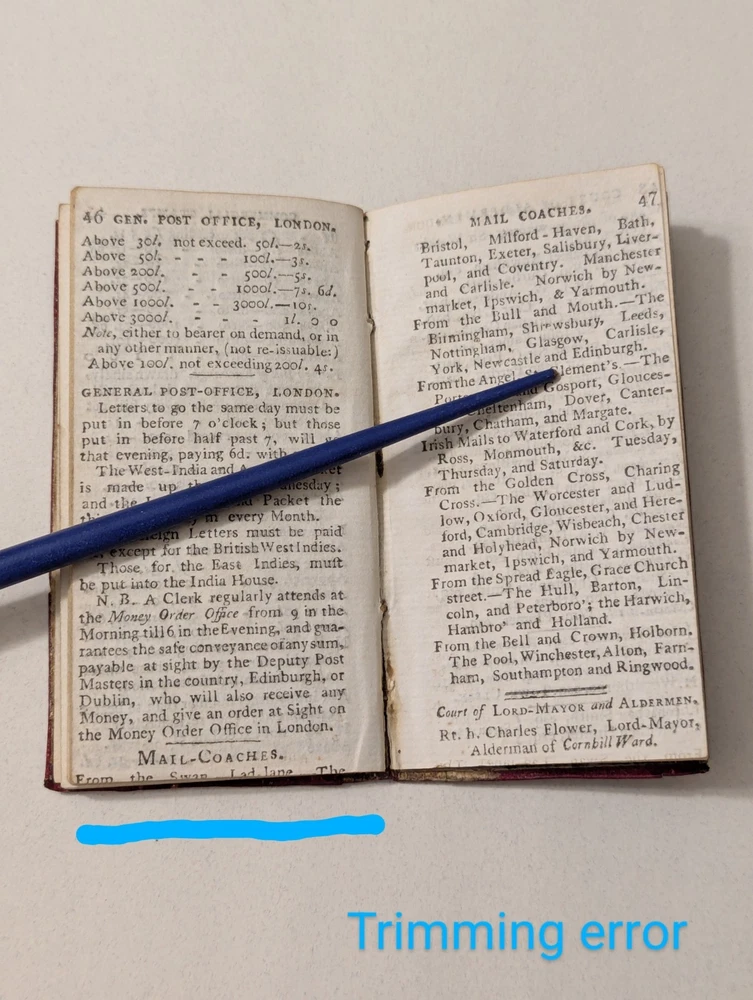 46 GEN. POST OFFICE, LONDON.
Above 30l. not exceed. 50l.—2s.
Above 50l. - - - 100l.—3s.
Above 200l. - - 500l.—5s.
Above 500l. - - 1000l.—7s. 6d.
Above 1000l. - - 3000l.—10s.
Above 3000l. - - - 1l. 0 0
Note, either to bearer on demand, or in
any other manner, (not re-issuable:)
Above 100l. not exceeding 200l. 4s.
GENERAL POST-OFFICE, LONDON.
Letters to go the same day must be
put in before 7 o'clock; but those
put in before half past 7, will go
that evening, paying 6d. with
The West-India and
is made up
and the Packet the
in every Month.
Letters must be paid
except for the British West Indies.
Those for the East Indies, muſt
be put into the India House.
N. B. A Clerk regularly attends at
the Money Order Office from 9 in the
Morning till 6 in the Evening, and gua-
rantees the safe conveyance of any sum,
payable at sight by the Deputy Post
Masters in the country, Edinburgh, or
Dublin, who will also receive any
Money, and give an order at Sight on
the Money Order Office in London.
MAIL-COACHES.
From the Swan, Lad-lane. The
MAIL COACHES. 47
Bristol, Milford-Haven, Bath,
Taunton, Exeter, Salisbury, Liver-
pool, and Coventry. Manchester
and Carlisle. Norwich by New-
market, Ipswich, & Yarmouth.
From the Bull and Mouth.—The
Birmingham, Shrewsbury, Leeds,
Nottingham, Glasgow, Carlisle,
York, Newcastle and Edinburgh.
From the Angel, St. Clement's.—The
Gosport, Glouces-
Cheltenham, Dover, Canter-
bury, Chatham, and Margate.
Irish Mails to Waterford and Cork, by
Ross, Monmouth, &c. Tuesday,
Thursday, and Saturday.
From the Golden Cross, Charing
Cross.—The Worcester and Lud-
low, Oxford, Gloucester, and Here-
ford, Cambridge, Wisbeach, Chester
and Holyhead, Norwich by New-
market, Ipswich, and Yarmouth.
From the Spread Eagle, Grace Church
street.—The Hull, Barton, Lin-
coln, and Peterboro'; the Harwich,
Hambro' and Holland.
From the Bell and Crown, Holborn.
The Pool, Winchester, Alton, Farn-
ham, Southampton and Ringwood.
Court of LORD-MAYOR and ALDERMEN.
Rt. h. Charles Flower, Lord-Mayor,
Alderman of Cornhill Ward.
Trimming error